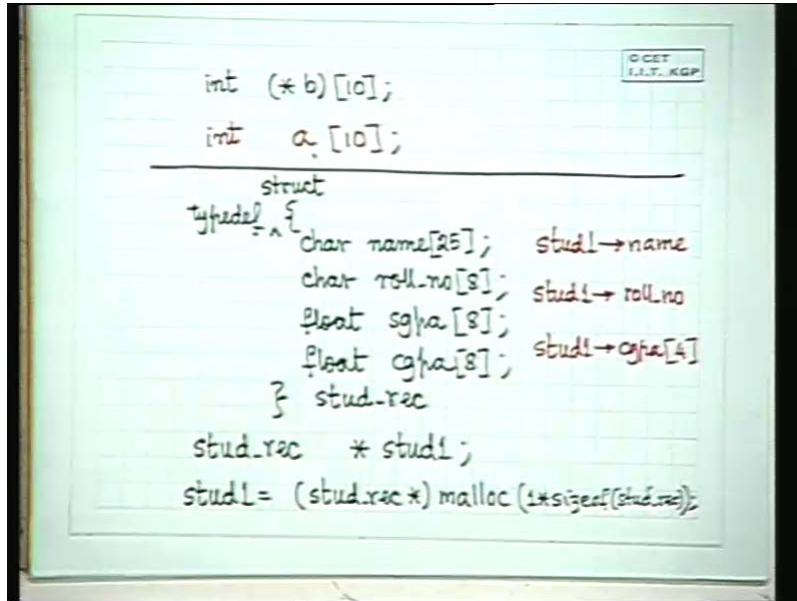 © CET
I.I.T. KGP
int (* b) [10];
int a [10];
struct
typedef ^ {
char name[25]; stud1→name
char roll_no[8]; stud1→ roll_no
float sgpa [8];
float cgpa[8]; stud1→cgpa[4]
} stud_rec
stud_rec * stud1;
stud1= (stud_rec*) malloc (1*sizeof(stud_rec));